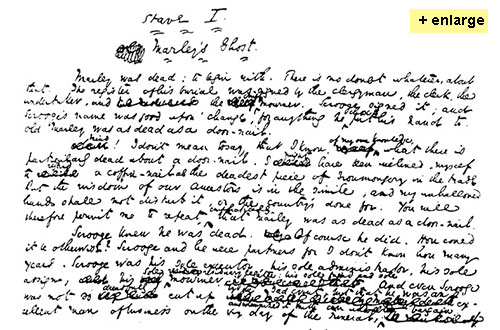 Stave I.
+ enlarge
Marley's Ghost.
Marley was dead; to begin with. There is no doubt whatever, about
that. The register of his burial was signed by the clergyman, the clerk, the
undertaker, and the chief mourner. Scrooge signed it; and
Scrooge's name was good upon 'Change, for anything he put his hand to.
Old Marley was as dead as a door-nail.
Mind! I don't mean to say that I know, of my own knowledge, what there is
particularly dead about a door-nail. I might have been inclined, myself,
to a coffin-nail as the deadest piece of ironmongery in the trade.
But the wisdom of our ancestors is in the simile; and my unhallowed
hands shall not disturb it, or the Country's done for. You will
therefore permit me to repeat, emphatically, that Marley was as dead as a door-nail.
Scrooge knew he was dead. Of course he did. How could
it be otherwise? Scrooge and he were partners for I don't know how many
years. Scrooge was his sole executor, his sole administrator, his sole
assign, his sole residuary legatee, his sole friend, his sole mourner. And even Scrooge
was not so cut up by the sad event, but that he was an ex-
cellent man of business on the very day of the funeral,